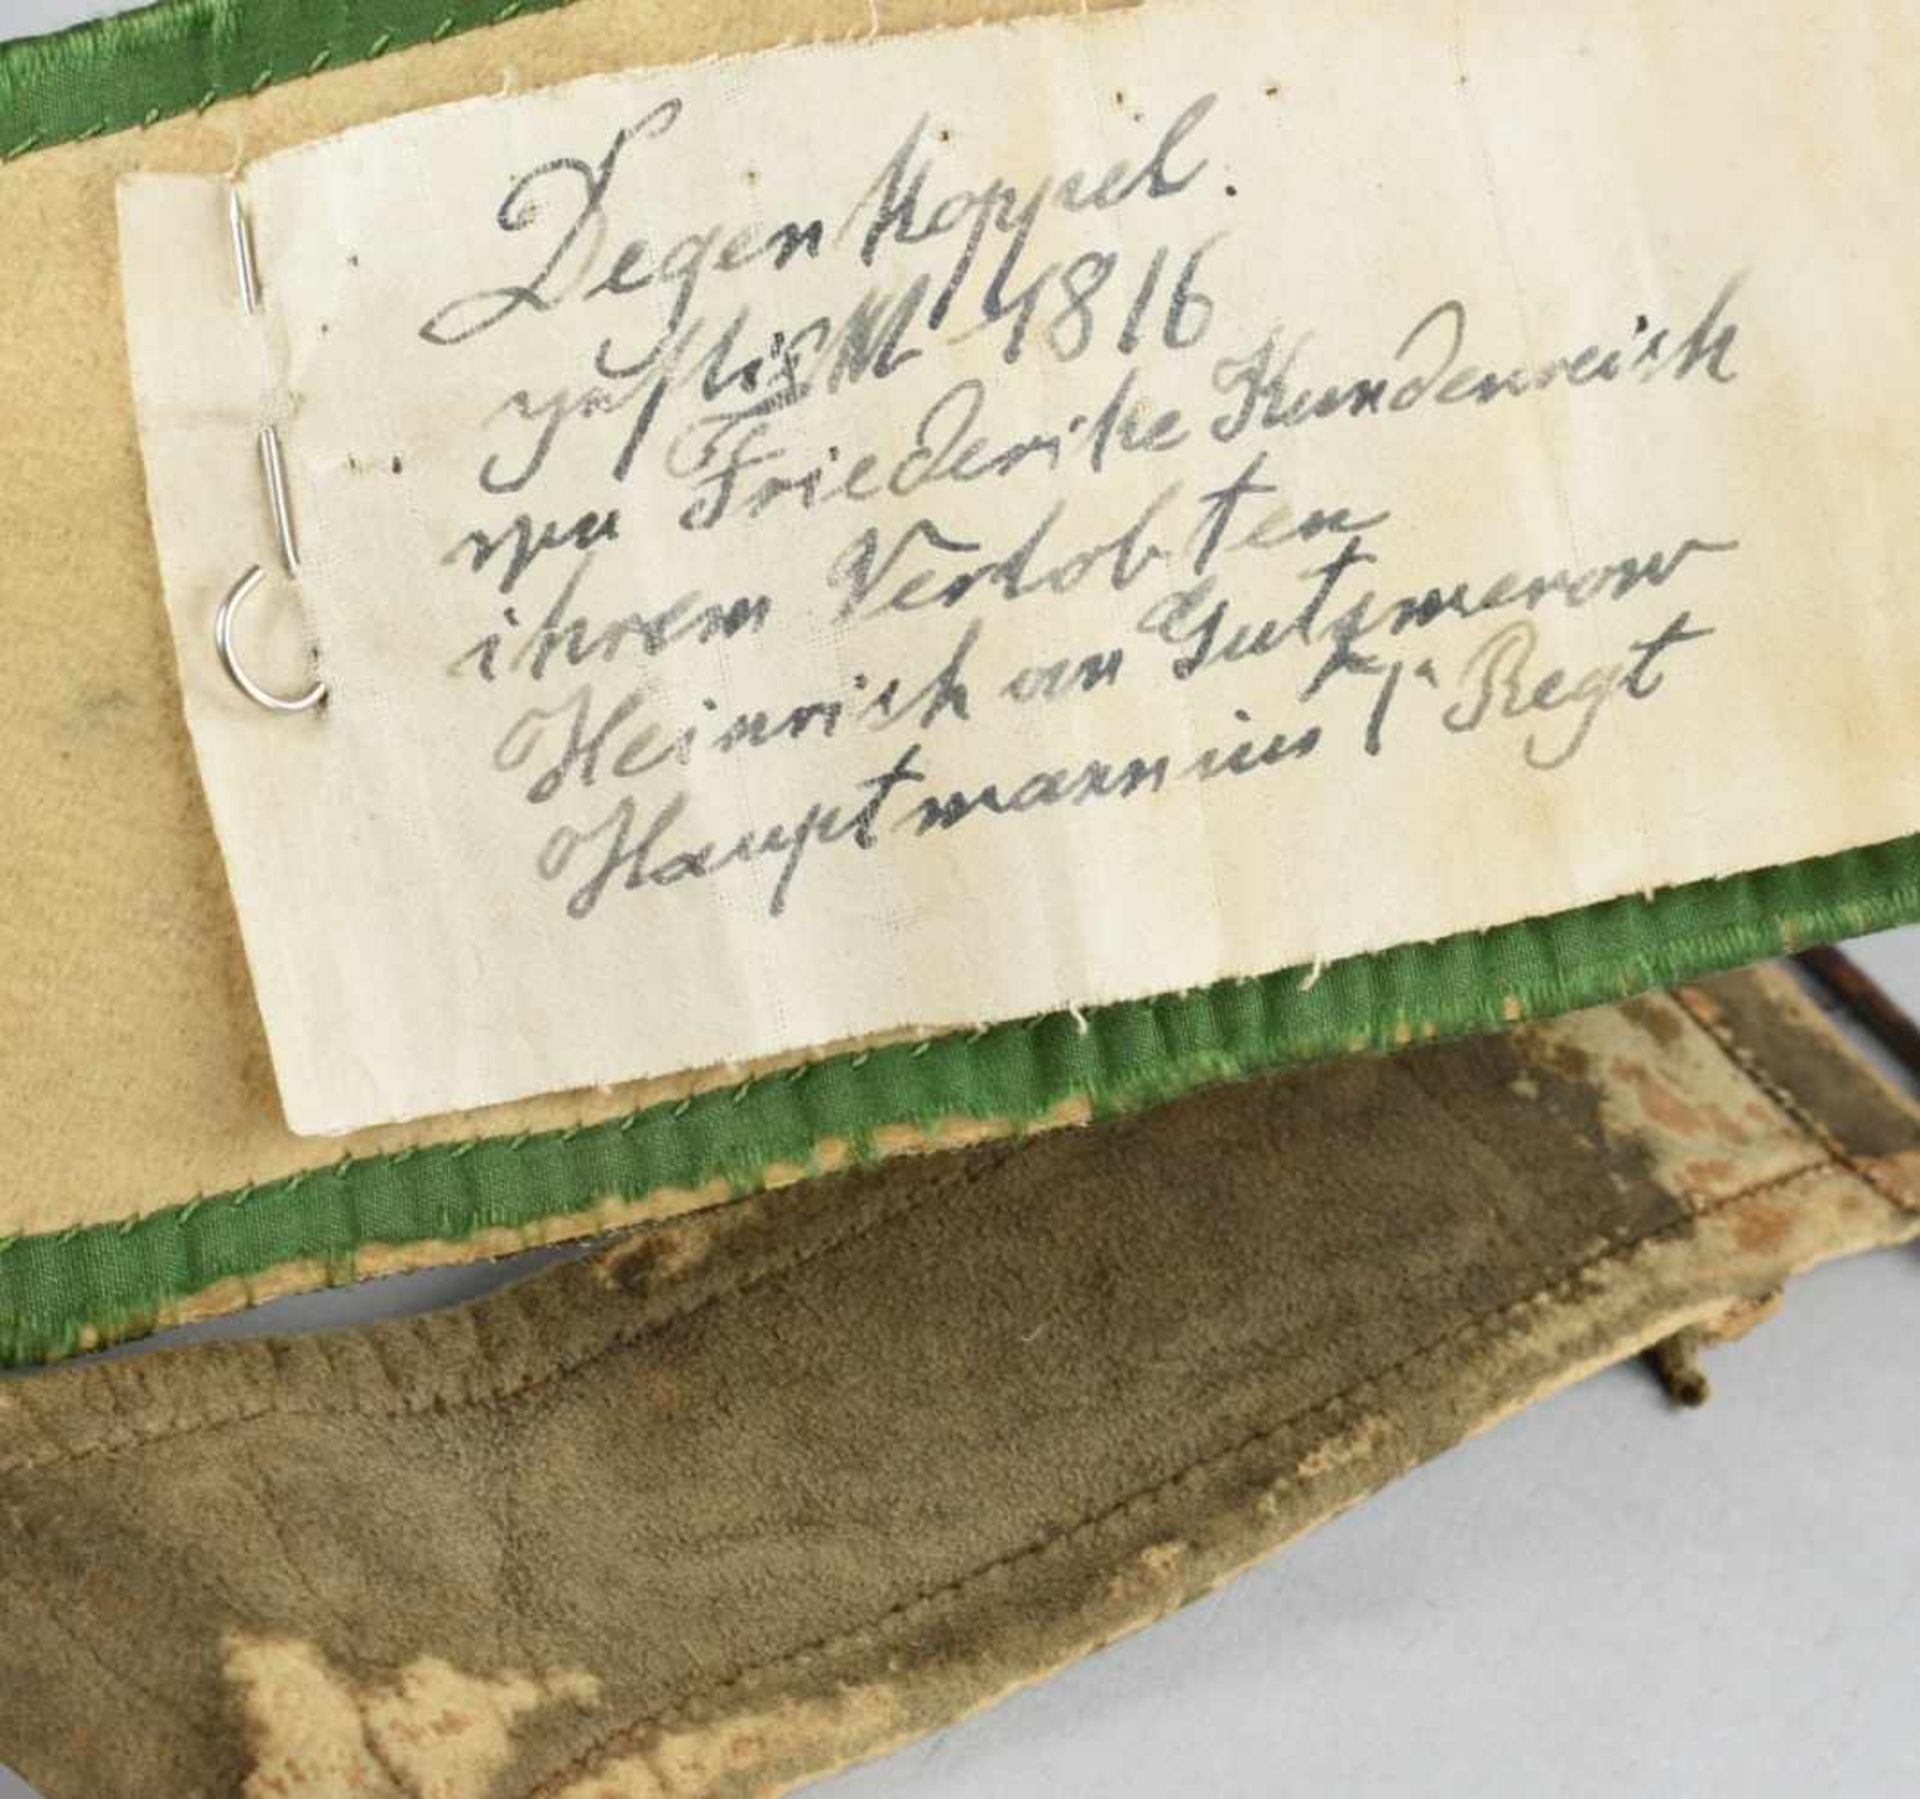 Degenkoppel.
gestickt 1816
von Friederike Kundenreich
ihrem Verlobten
Heinrich von Gutzmerow
Hauptmann im Regt